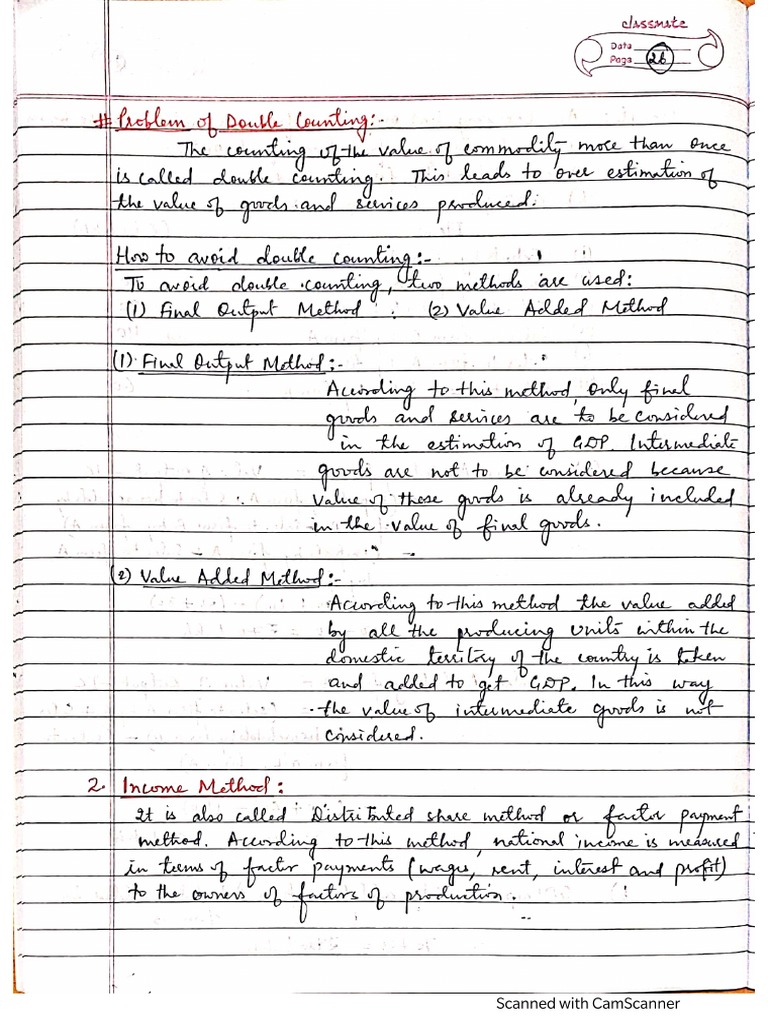 classmate
Date
Page 26
# Problem of Double Counting:-
The counting of the value of commodity more than once
is called double counting. This leads to over estimation of
the value of goods and services produced.
How to avoid double counting:-
To avoid double counting, two methods are used:
(1) Final Output Method (2) Value Added Method
(1) Final Output Method:-
According to this method, only final
goods and services are to be considered
in the estimation of GDP. Intermediate
goods are not to be considered because
value of these goods is already included
in the value of final goods.
(2) Value Added Method:-
According to this method the value added
by all the producing units within the
domestic territory of the country is taken
and added to get GDP. In this way
the value of intermediate goods is not
considered.
2. Income Method:
It is also called Distributed share method or factor payment
method. According to this method, national income is measured
in terms of factor payments (wages, rent, interest and profit)
to the owners of factors of production.
Scanned with CamScanner